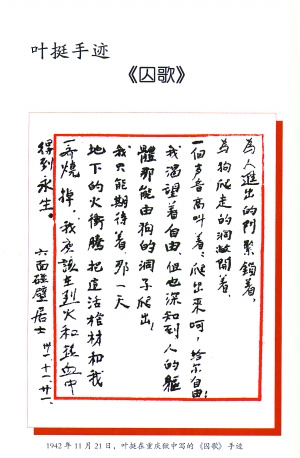 叶挺手迹
《囚歌》
為人進出的門緊鎖着，
為狗爬走的洞敞開着，
一個声音高叫着：爬出來呵，给尔自由！
我渴望着自由，但也深知到人的軀
體那能由狗的洞子爬出！
我只能期待着那一天
地下的火衝騰把這活棺材和我
一齊燒掉，我应該在烈火和热血中
得到永生。
六面碰壁居士
卅一·十一·廿一、
1942年11月21日，叶挺在重庆狱中写的《囚歌》手迹